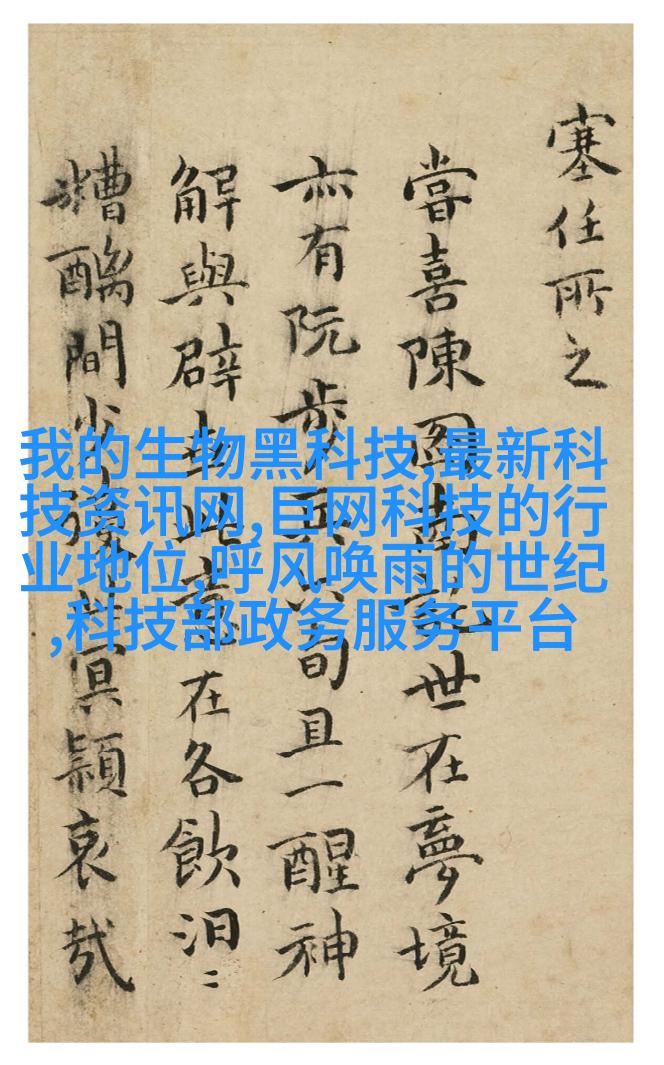 塞任所之
嘗喜陳圖南世在夢境
亦有阮步兵六旬且一醒神
解與辟此意在各飲汩〻
糟醨間少冥穎哀哉
我的生物黑科技,最新科
技资讯网,巨网科技的行
业地位,呼风唤雨的世纪
,科技部政务服务平台